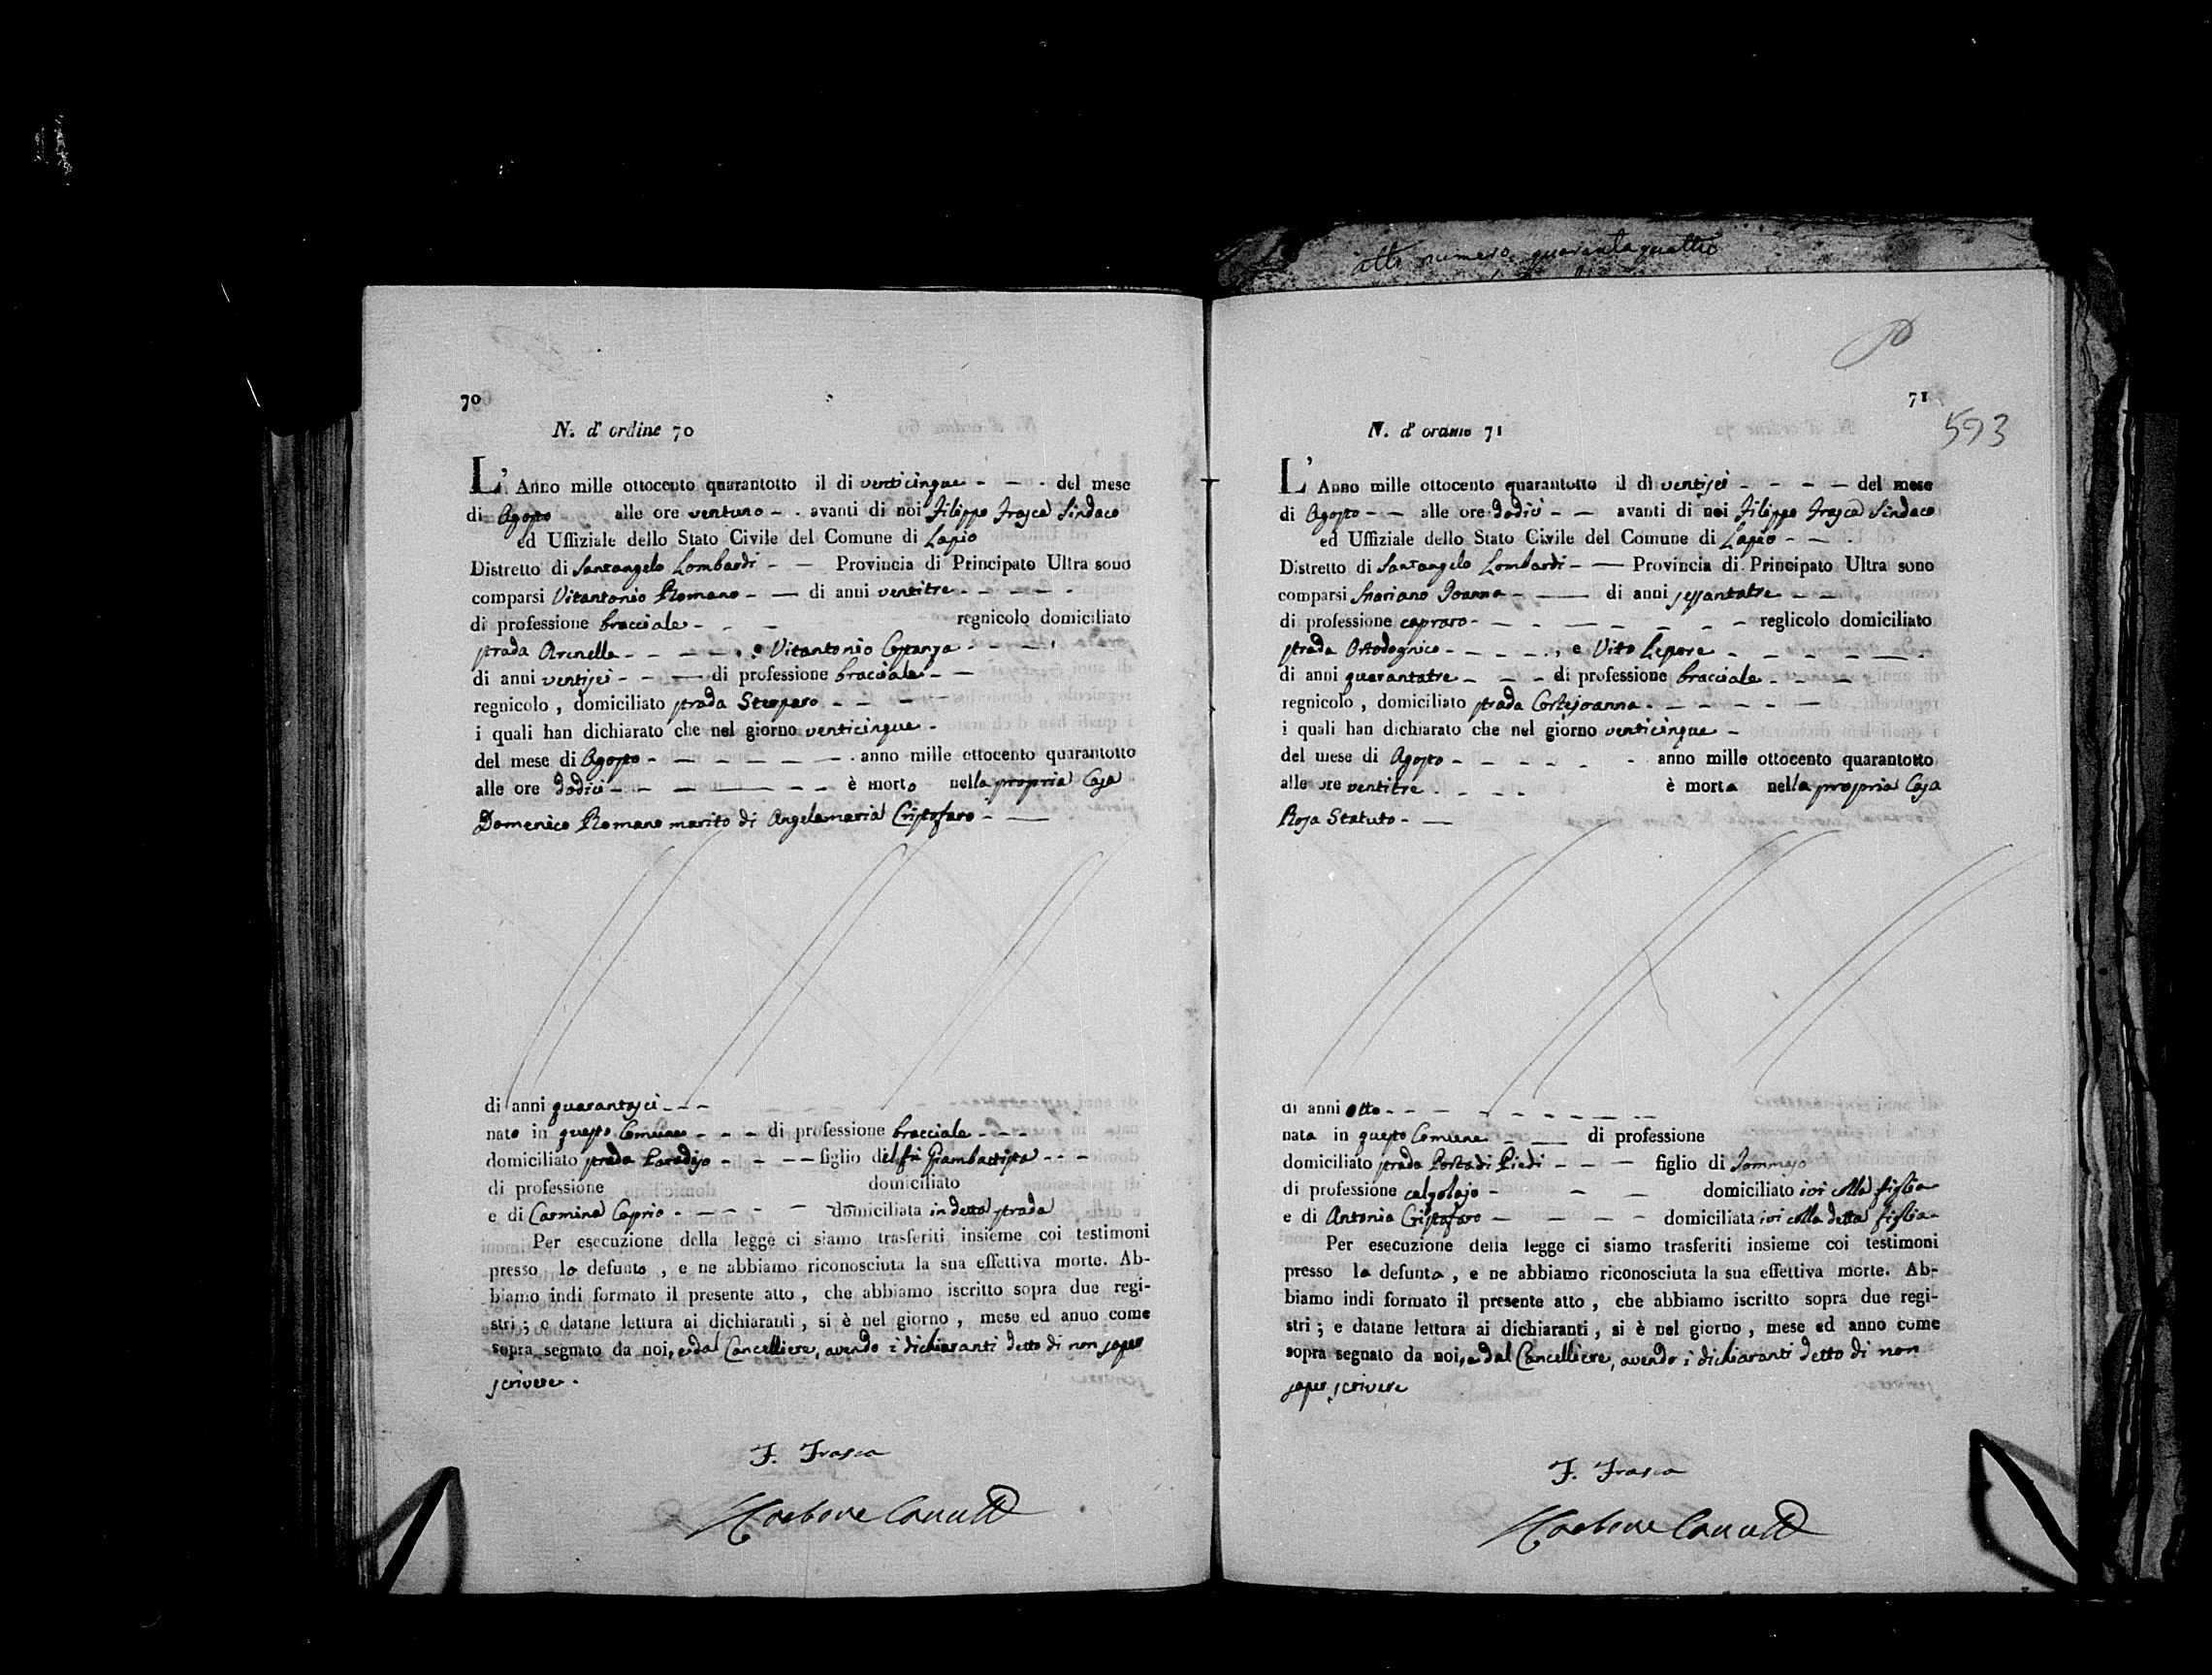 atto numero quarantaquattro
70
N. d' ordine 70
L' Anno mille ottocento quarantotto il di venticinque - - - del mese
di Agosto alle ore ventuno - - avanti di noi Filippo Frasca Sindaco
ed Uffiziale dello Stato Civile del Comune di Lapio
Distretto di Santangelo Lombardi - - Provincia di Principato Ultra sono
comparsi Vitantonio Romano - - di anni ventitre - - - - -
di professione bracciale - - - regnicolo domiciliato
strada Arenella - - - - , e Vitantonio Costanza - - - -
di anni ventisei - - - di professione bracciale - -
regnicolo , domiciliato strada - - - -
i quali han dichiarato che nel giorno venticinque -
del mese di Agosto - - - - - - - anno mille ottocento quarantotto
alle ore dodici - - - - - è morto nella propria Casa
Domenico Romano marito di Angelamaria Cristofaro - -
di anni quarantasei - - -
nato in questo Comune - - - di professione bracciale - - -
domiciliato strada Paradiso - - - - figlio del fù Giambattista - - -
di professione domiciliato
e di Carmina Caprio - - - - - - domiciliata in detta strada
Per esecuzione della legge ci siamo trasferiti insieme coi testimoni
presso lo defunto , e ne abbiamo riconosciuta la sua effettiva morte. Ab-
biamo indi formato il presente atto , che abbiamo iscritto sopra due regi-
stri ; e datane lettura ai dichiaranti , si è nel giorno , mese ed anno come
sopra segnato da noi, e dal Cancelliere, avendo i dichiaranti detto di non saper
scrivere .
F. Frasca
71
593
N. d' ordine 71
L' Anno mille ottocento quarantotto il dì ventisei - - - - del mese
di Agosto - - alle ore dodici - - avanti di noi Filippo Frasca Sindaco
ed Uffiziale dello Stato Civile del Comune di Lapio - -
Distretto di Santangelo Lombardi - - Provincia di Principato Ultra sono
comparsi Mariano Joanna - - di anni sessantatre - -
di professione capraro - - - - - - - - reglicolo domiciliato
strada Ortodognico - - - - , e Vito Lepore - - - - - -
di anni quarantatre - - - di professione bracciale - - -
regnicolo , domiciliato strada Cortejoanna - - - - - -
i quali han dichiarato che nel giorno venticinque -
del mese di Agosto - - - - - - anno mille ottocento quarantotto
alle ore ventitre - - - - è morta nella propria Casa
Rosa Statuto - -
di anni otto - - - - - - - - - -
nata in questo Comune - - di professione
domiciliato strada Porta di Piedi - - - figlio di Tommaso
di professione calzolajo - - - domiciliato ivi colla figlia
e di Antonia Cristofaro - - - - domiciliata ivi colla detta figlia
Per esecuzione della legge ci siamo trasferiti insieme coi testimoni
presso la defunta , e ne abbiamo riconosciuta la sua effettiva morte. Ab-
biamo indi formato il presente atto , che abbiamo iscritto sopra due regi-
stri ; e datane lettura ai dichiaranti , si è nel giorno , mese ed anno come
sopra segnato da noi, e dal Cancelliere, avendo i dichiaranti detto di non
saper scrivere
F. Frasca